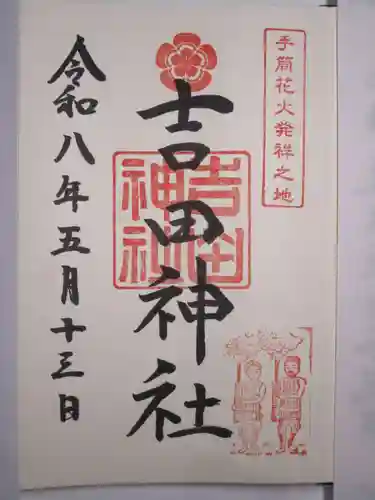 手筒花火発祥之地
吉田神社
吉田神社
令和八年五月十三日